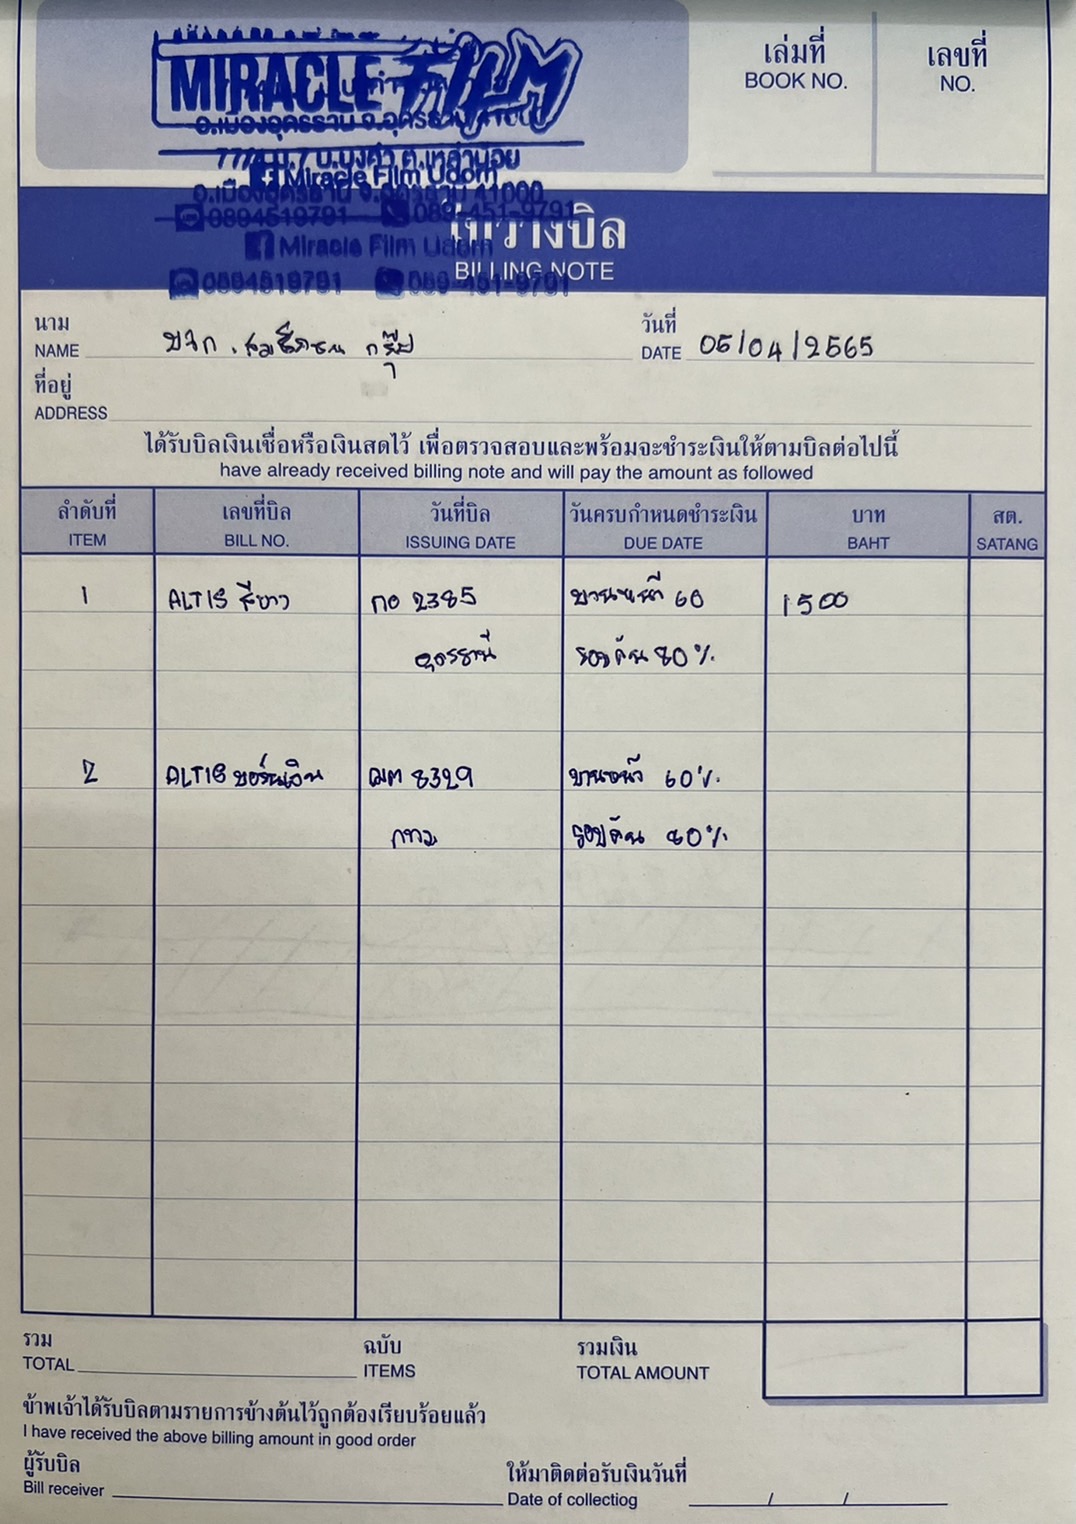 MIRACLE FILM
อ.เมืองอุดรธานี จ.อุดรธานี 41000
ต.เหล่าน้อย
Miracle Film Udorn
อ.เมืองอุดรธานี จ.อุดรธานี 41000
0894519791 089-451-9791
Miracle Film Udorn
0894519791 089-451-9791
เล่มที่ เลขที่
BOOK NO. NO.
ใบวางบิล
BILLING NOTE
นาม วันที่
NAME บจก. กรุ๊ป DATE 05/04/2565
ที่อยู่
ADDRESS
ได้รับบิลเงินเชื่อหรือเงินสดไว้ เพื่อตรวจสอบและพร้อมจะชำระเงินให้ตามบิลต่อไปนี้
have already received billing note and will pay the amount as followed
ลำดับที่ เลขที่บิล วันที่บิล วันครบกำหนดชำระเงิน บาท สต.
ITEM BILL NO. ISSUING DATE DUE DATE BAHT SATANG
1 ALTIS สีขาว กอ 2385 บานหน้า 60 1500
อุดรธานี รอบคัน 80%
2 ALTIS บอร์นเงิน ฌต 8329 บานหน้า 60%
กทม รอบคัน 80%
รวม ฉบับ รวมเงิน
TOTAL ITEMS TOTAL AMOUNT
ข้าพเจ้าได้รับบิลตามรายการข้างต้นไว้ถูกต้องเรียบร้อยแล้ว
I have received the above billing amount in good order
ผู้รับบิล ให้มาติดต่อรับเงินวันที่
Bill receiver Date of collectiog / /